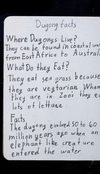 Dugong facts
Where Dugongs Live?
They can be found in coastal wat
from East Africa to Austral
What Do they Eat?
They eat sea grass because
they are vegetarian When
they are in Zoos they ea
lots of lettuce
Facts
The dugong embed 50 to 60
million years ago when an
elephant like creature
entered the water